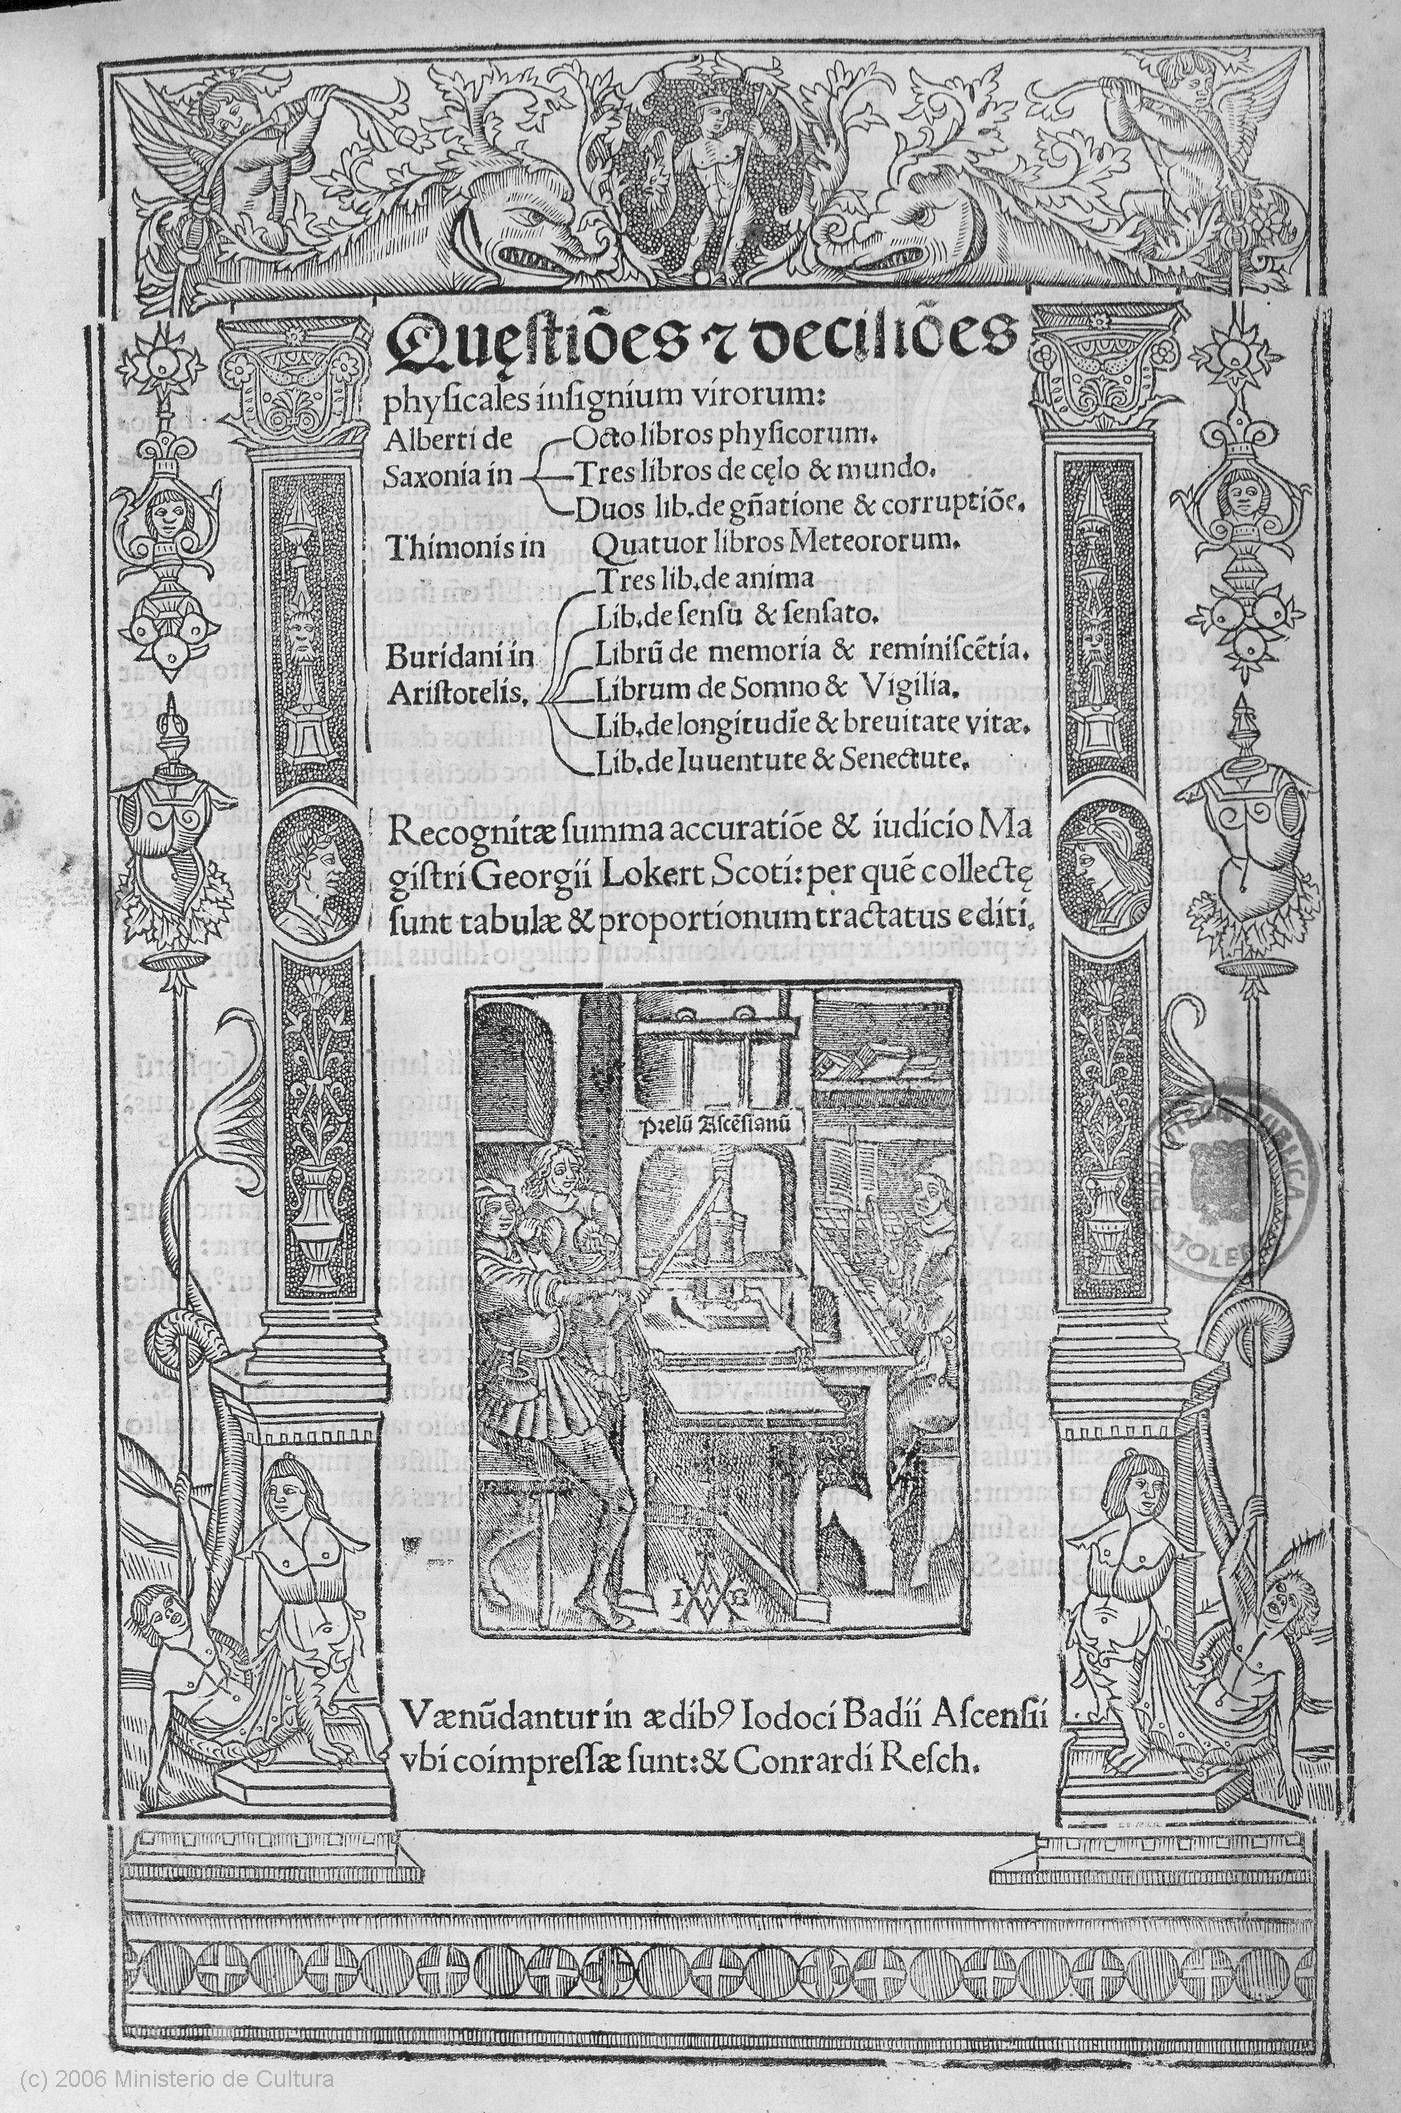 Quęstiões ⁊ deciſiões
phyſicales inſignium virorum:
Alberti de
Saxonia in
Octo libros phyſicorum.
Tres libros de cęlo & mundo.
Duos lib. de gñatione & corruptiõe.
Thimonis in Quatuor libros Meteororum.
Buridani in
Ariſtotelis.
Tres lib. de anima
Lib. de ſenſu & ſenſato.
Librũ de memoria & reminiſcẽtia.
Librum de Somno & Vigilia.
Lib. de longitudĩe & breuitate vitæ.
Lib. de Iuuentute & Senectute.
Recognitæ ſumma accuratiõe & iudicio Ma
giſtri Georgii Lokert Scoti: per quẽ collectę
ſunt tabulæ & proportionum tractatus editi.
Prelũ Aſcẽſianũ
I G
Vænũdantur in ædibꝰ Iodoci Badii Aſcenſii
vbi coimpreſſæ ſunt: & Conrardi Reſch.
PUBLICA
TOLEDO
(c) 2006 Ministerio de Cultura